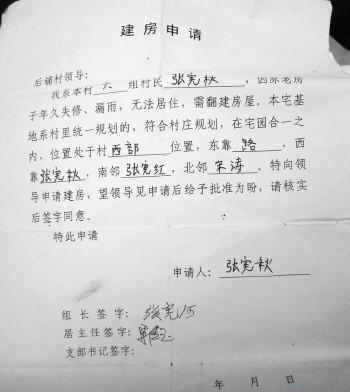 建房申请
后铺村领导：
我系本村 六 组村民 张宪秋 ，因原老房
子年久失修、漏雨，无法居住，需翻建房屋。本宅基
地系村里统一规划的，符合村庄规划，在宅园合一之
内，位置处于村 西部 位置，东靠 路 ，西
靠张宪秋，南邻 张宪红，北邻 宋涛。特向领
导申请建房，望领导见申请后给予批准为盼，请核实
后签字同意。
特此申请
申请人：张宪秋
组长签字：张宪河
居主任签字：
支部书记签字：
年 月 日